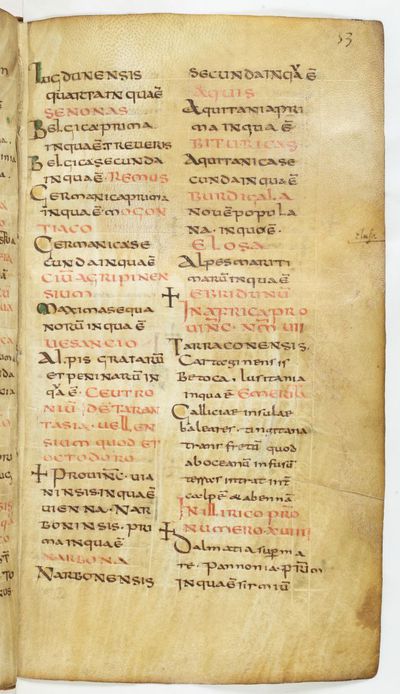 53
Lugdunensis
quarta in qua ē
Senonas
Belgica prima
in qua ē Treveris
Belgica secunda
in qua ē Remus
Germanica prima
in qua ē Mogon
tiaco
Germanica se
cunda in qua ē
Civ̄ Agripinen
sium
Maxima sequa
norū in qua ē
Vesancio
Alpis Graiarū
et Peninarū in
q̄a ē Ceutro
niū De Taran
tasia Vellen
sium quod et
Octodoro
+ Provinc̄ Via
ninsis in qua ē
Vienna Nar
boninsis pri
ma in qua ē
Narbona
Narbonensis
secunda in q̄a ē
Aquis
Aquitania pri
ma in qua ē
Bituricas
Aquitanica se
cunda in qua ē
Burdigala
Novē popula
na in qua ē
Elosa
elusa
Alpes mariti
marū in qua ē
+ Ebridunū
In Africa pro
vinc̄
Tarraconensis
Cartaginensis
Betoca Lusitania
in qua ē Emerita
Calliciae insulae
baleares Tingitana
trans fretū quod
ab oceanū infusū
terras intrat int̄
calpē &
In Illirico pro
numero XVIIII
+ Dalmatia super ma
re Pannonia
in qua ē Sirmiū